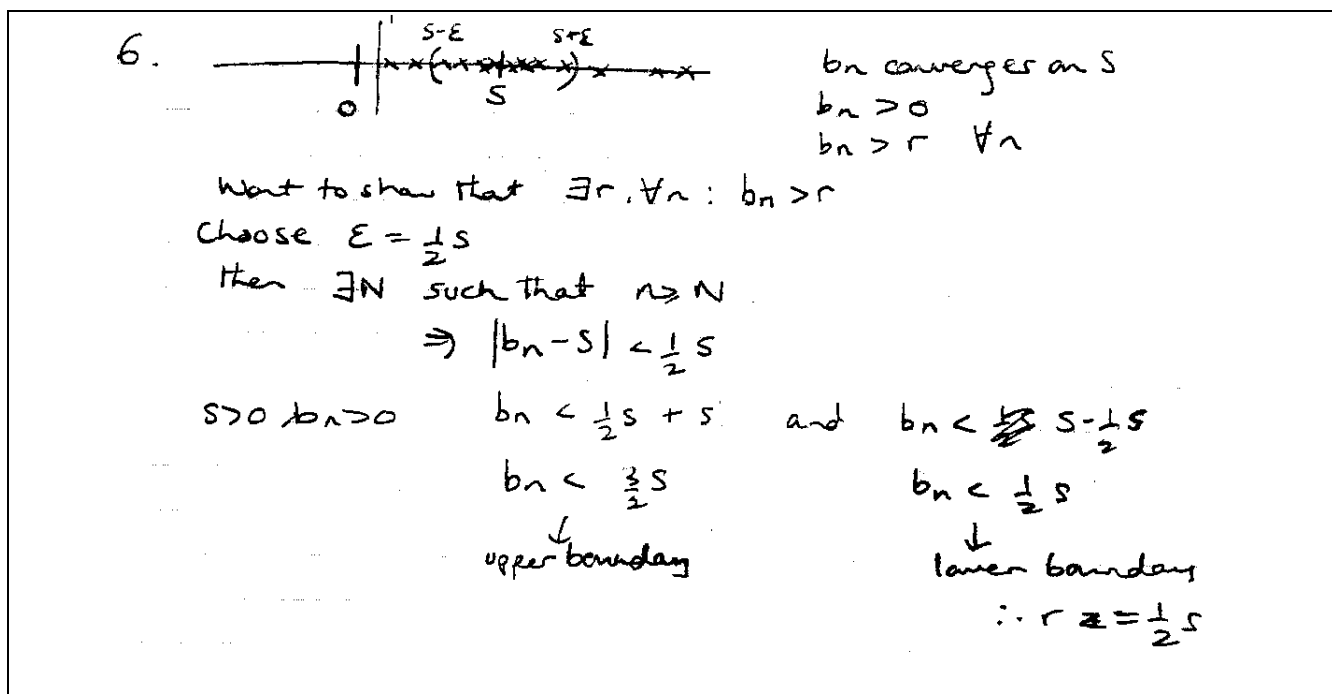 6.
s-ε s+ε
0 S
bn converges on S
bn > 0
bn > r ∀n
Want to show that ∃r, ∀n : bn > r
Choose ε = 1/2 s
then ∃N such that n ≥ N
⇒ |bn - S| < 1/2 s
s>0, bn>0 bn < 1/2 s + s and bn < s - 1/2 s
bn < 3/2 s bn < 1/2 s
↓ ↓
upper boundary lower boundary
∴ r = 1/2 s